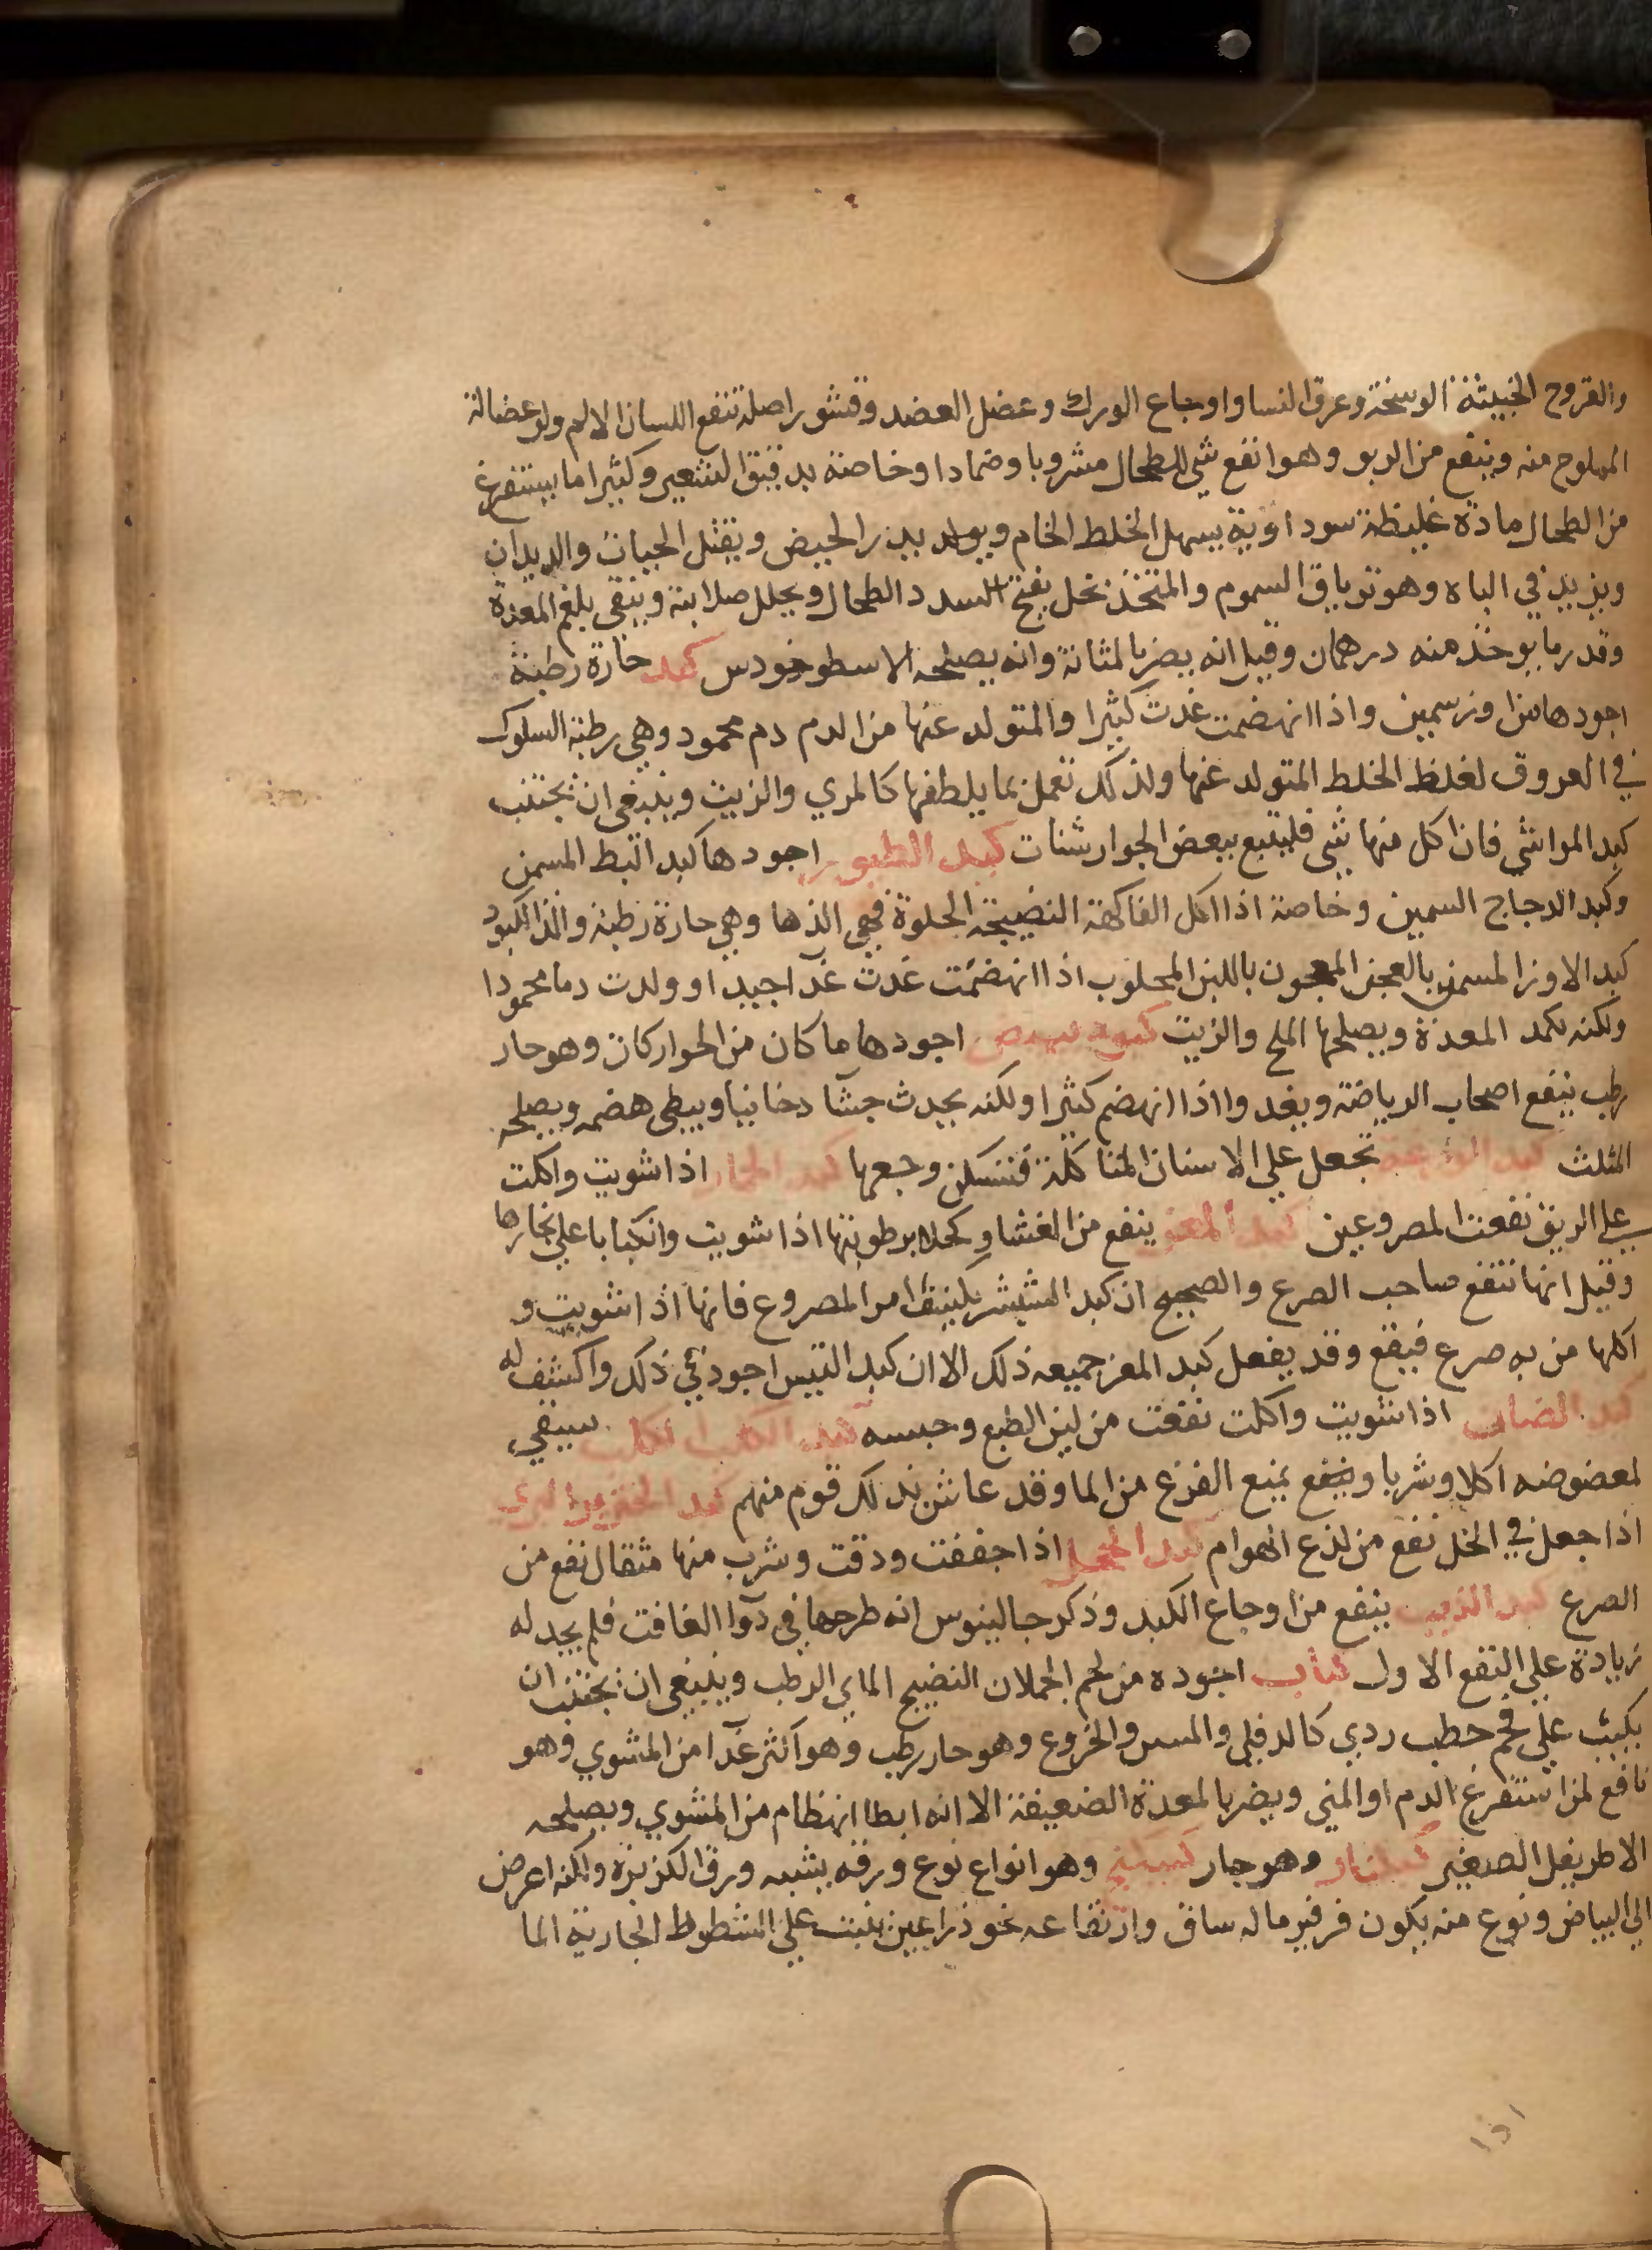 والقروح الخبيثة الوسخة وعرق النسا واوجاع الورك وعضل العضد وقشور اصله تنفع اللسان الالم ولو عضالة
المملوح منه وينفع من الربو وهو انفع شي للطحال مشروبا وضمادا وخاصة بدقيق الشعير وكثيرا ما يستفرغ
من الطحال مادة غليظة سوداوية يسهل الخلط الخام ويولد يدر الحيض ويقتل الحيات والديدان
ويزيد في الباه وهو ترياق السموم والمتخذ بخل يفتح السدد الطحال ويحلل صلابته وينقي بلغم المعدة
وقدر ما يوخذ منه درهمان وقيل انه يضر بالمثانة وانه يصلحه الاسطوخودس كبد حارة رطبة
اجودها من اوز سمين واذا انهضمت غدت كثيرا والمتولد عنها من الدم دم محمود وهي رطبة السلوك
في العروق لغلظ الخلط المتولد عنها ولذلك تعمل بما يلطفها كالمري والزيت وينبغي ان يجتنب
كبد المواشي فان اكل منها شي فليتبع ببعض الجوارشنات كبد الطيور اجودها كبد البط المسمن
وكبد الدجاج السمين وخاصة اذا اكل الفاكهة النضيجة الحلوة فهي الذها وهي حارة رطبة والذ الكبود
كبد الاوز المسمن بالعجين المعجون باللبن المحلوب اذا انهضمت غدت غدا جيدا وولدت دما محمودا
ولكنه يكمد المعدة ويصلحها الملح والزيت اجودها ما كان من الحوار كان وهو حار
رطب ينفع اصحاب الرياضة ويغدوا اذا انهضم كثيرا ولكنه يحدث جشا دخانيا ويبطي هضمه ويصلحه
المثلث كبد تجعل علي الاسنان المتاكلة فتسكن وجعها كبد الحمار اذا شويت واكلت
علي الريق نفعت المصروعين كبد المعز ينفع من الغشا وكحلا برطوبتها اذا شويت وانكبابا علي بخارها
وقيل انها تنفع صاحب الصرع والصحيح ان كبد امر المصروع فانها اذا شويت و
اكلها من به صرع فيقع وقد يفعل كبد المعز جميعه ذلك الا ان كبد التيس اجود في ذلك واكشف له
كبد الضان اذا شويت واكلت نفعت من لين الطبع وحبسه كبد الكلب سيقي
لمعضوضه اكلا وشربا وينفع يمنع الفزع من الما وقد عاش بذلك قوم منهم كبد الخنزير البري
اذا جعل في الخل نفع من لذع الهوام كبد الجمل اذا جففت ودقت وشرب منها مثقال نفع من
الصرع كبد الذيب ينفع من اوجاع الكبد وذكر جالينوس انه طرحها في دوا الغافت فلم يجد له
زيادة علي النفع الاول كباب اجوده من لحم الحملان النضيج الماي الرطب وينبغي ان يجتنب ان
يكبب علي فحم حطب ردي كالدفلي والمسن والخروع وهو حار رطب وهو اكثر غدا من المشوي وهو
نافع لمن استفرغ الدم او المني ويضر بالمعدة الضعيفة الا انه ابطا انهظام من المشوي ويصلحه
الاطريفل الصغير وهو حار كبيكج وهو انواع نوع ورقه يشبه ورق الكزبرة ولكنه اعرض
الي البياض ونوع منه يكون فرفير ماله ساق وارتفاعه نحو ذراعين ينبت علي الشطوط الجارية الما
١٥١